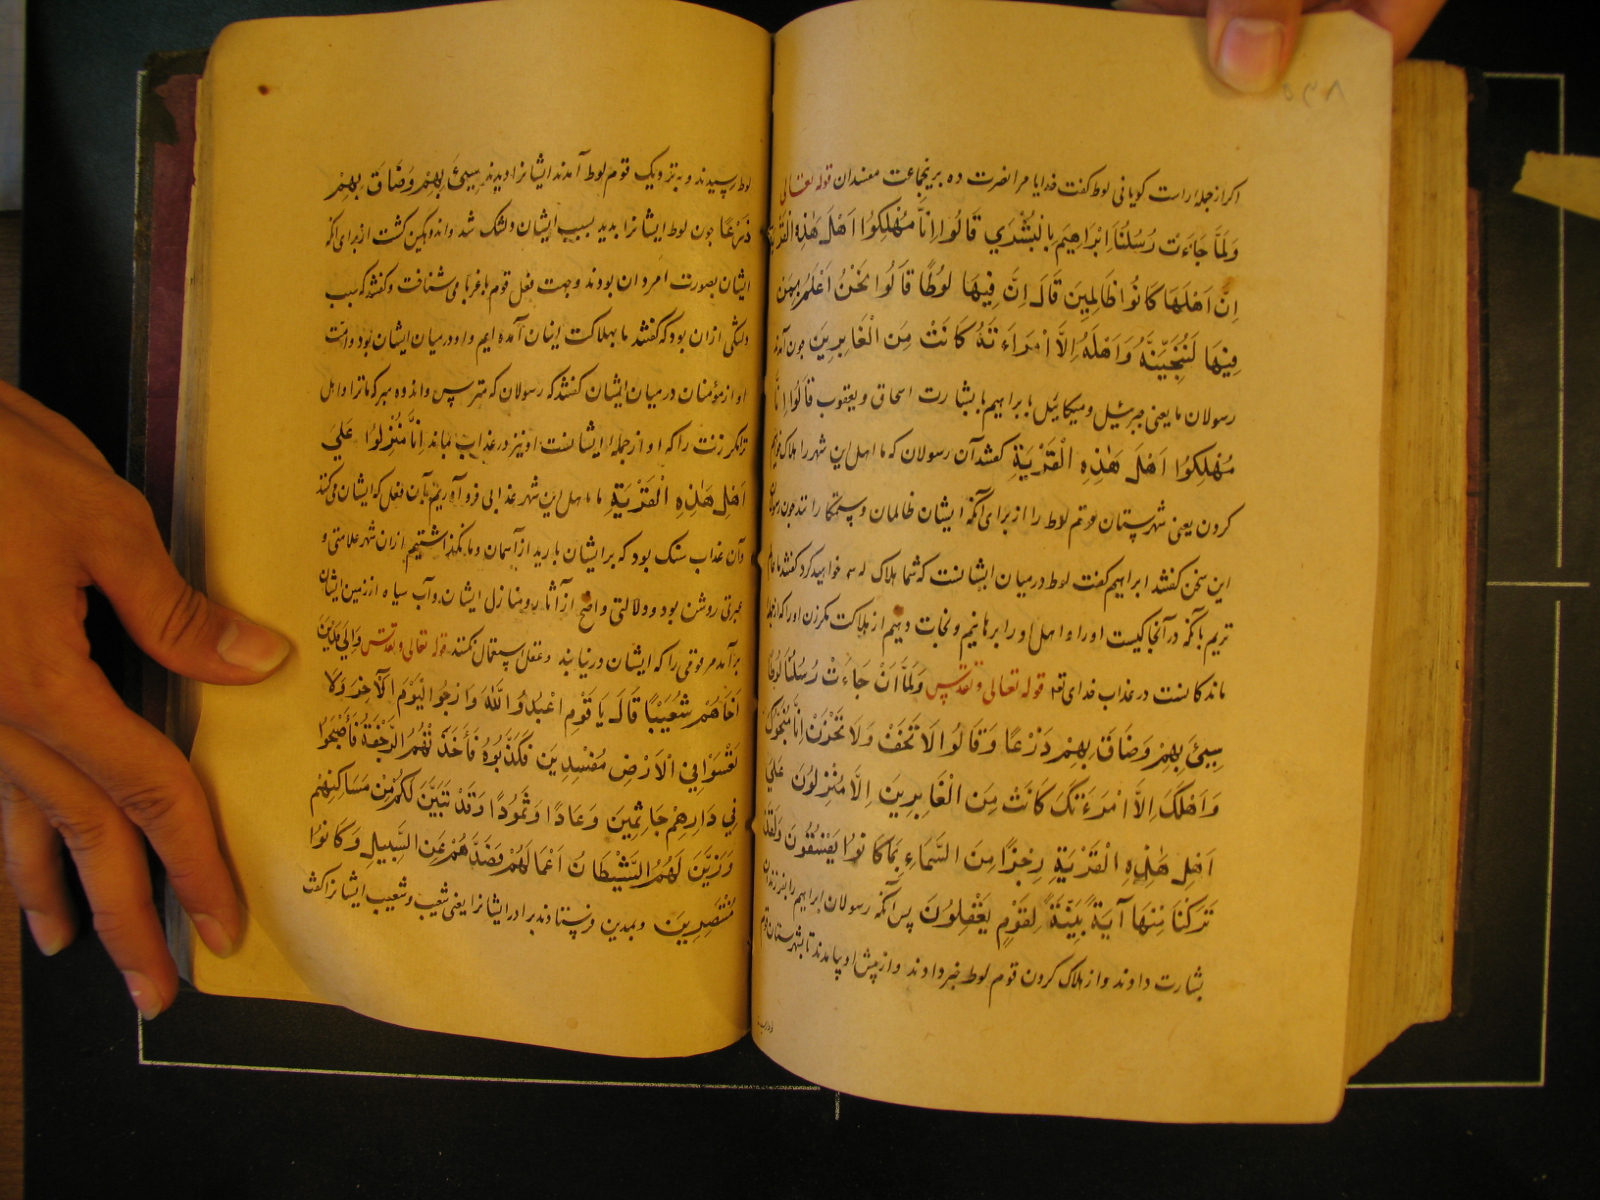 اکر از جمله راست کویانی لوط کفت خدایا مرا نصرت ده برینجماعت مفسدان قوله تعالی
وَلَمَّا جَاءَت رُسُلُنَا اِبْرَاهِيمَ بِالْبُشْرَي قَالُوا اِنَّا مُهْلِكُوا اَهْلَ هٰذِهِ الْقَرْيَةِ
اِنَّ اَهْلَهَا كَانُوا ظَالِمِينَ قَالَ اِنَّ فِيهَا لُوطًا قَالُوا نَحْنُ اَعْلَمُ بِمَنْ
فِيهَا لَنُنَجِّيَنَّهُ وَاَهْلَهُ اِلَّا امْرَاَءتَهُ كَانَتْ مِنَ الْغَابِرِينَ جون آمدند
رسولان ما یعنی جبرئیل و میکائیل بابراهیم بابشارت اسحاق و یعقوب قَالُوا اِنَّا
مُهْلِكُوا اَهْلَ هٰذِهِ الْقَرْيَةِ کفتند آن رسولان که ما اهل این شهر را هلاک خواهیم
کردن یعنی شهرستان قوم لوط را از برای آنکه ایشان ظالمان و ستمکارانند جون رسولان
این سخن کفتند ابراهیم کفت لوط درمیان ایشانست که شما هلاک خواهید کرد کفتند ما عالم
تریم بآنکه در آنجا کیست اورا و اهل اورا برهانیم و نجات دهیم از هلاکت مکر زن اورا که از جمله
ماندکانست در عذاب خدای قوله تعالی و تقدس وَلَمَّا اَنْ جَاءَتْ رُسُلُنَا لُوطًا
سِيئَ بِهِمْ وَضَاقَ بِهِمْ ذَرْعًا وَقَالُوا لَا تَخَفْ وَلَا تَحْزَنْ اِنَّا مُنَجُّوكَ
وَاَهْلَكَ اِلَّا امْرَءَتَكَ كَانَتْ مِنَ الْغَابِرِينَ اِلَّا مُنْزِلُونَ عَلَي
اَهْلِ هٰذِهِ الْقَرْيَةِ رِجْزًا مِنَ السَّمَاءِ بِمَا كَانُوا يَفْسُقُونَ وَلَقَدْ
تَرَكْنَا مِنْهَا آيَةً بَيِّنَةً لِقَوْمٍ يَعْقِلُونَ پس آنکه رسولان ابراهیم را بفرزندان
بشارت دادند و از هلاک کردن قوم لوط خبر دادند و از پیش او بیامدند تا بشهرستان قوم
لوط رسیدند و بنزدیک قوم لوط آمدند ایشانرا دیدند سِيئَ بِهِمْ وَضَاقَ بِهِمْ
ذَرْعًا جون لوط ایشانرا بدید بسبب ایشان دلتنک شد و اندوهکین کشت از برای آنکه
ایشان بصورت امردان بودند و جهت فعل قوم باغربا می شناخت و کفتند که سبب
دلتنکی ازان بود که کفتند ما بهلاکت اینان آمده ایم و او درمیان ایشان بود و دانست
او از مؤمنان درمیان ایشان کفتند که رسولان که مترس و اندوه مبر که ما ترا و اهل
ترا مکر زنت را که او از جمله ایشانست او نیز در عذاب بماند اِنَّا مُنْزِلُوا عَلَي
اَهْلِ هٰذِهِ الْقَرْيَةِ ما باهل این شهر عذابی فرو آوریم بآن فعل که ایشان می کنند
و آن عذاب سنک بود که بر ایشان بارید از آسمان و ما بکذاشتیم ازان شهر علامتی و
عبرتی روشن بود و دلالتی واضح از آثار و منازل ایشان و آب سیاه از زمین ایشان
برآمد مر قومی را که ایشان دریابند و عقل استعمال کنند قوله تعالی و تقدس وَاِلَي مَدْيَنَ
اَخَاهُمْ شُعَيْبًا قَالَ يَا قَوْمِ اعْبُدُوا اللّٰهَ وَارْجُوا الْيَوْمَ الْآخِرَ وَلَا
تَعْثَوْا فِي الْاَرْضِ مُفْسِدِينَ فَكَذَّبُوهُ فَاَخَذَتْهُمُ الرَّجْفَةُ فَاَصْبَحُوا
فِي دَارِهِمْ جَاثِمِينَ وَعَادًا وَثَمُودًا وَقَدْ تَبَيَّنَ لَكُمْ مِنْ مَسَاكِنِهِمْ
وَزَيَّنَ لَهُمُ الشَّيْطَانُ اَعْمَالَهُمْ فَصَدَّهُمْ عَنِ السَّبِيلِ وَكَانُوا
مُسْتَبْصِرِينَ و بمدین فرستادند برادر ایشانرا یعنی شعیب و شعیب ایشانرا کفت